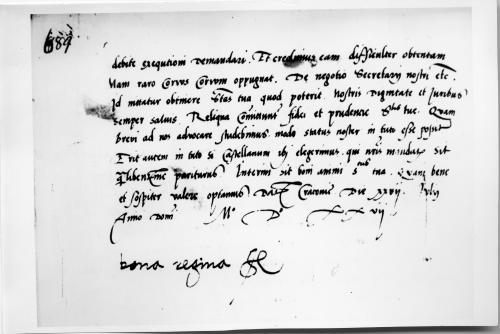 debite exequutioni demandari. Et credimus eam difficulter obtentam
Nam raro Corvus Corvom oppugnat. De negotio Secretarij nostri etc.
Id nitatur obtinere Stas tua quod poterit. Nostris dignitate et Juribus
semper salvis. Reliqua Comittimus fidei et prudencie Stis tue. Quam
brevi ad nos advocare studebimus. modo status noster in tuto esse possit
Erit autem in tuto si Castellanum ibi elegerimus. qui nris mandatis sit
libentissime pariturus. Interim sit boni animi Stas tua. Quam bene
et sospiter valere optamus Datum Cracovie Die xxvij July
Anno Domi Mo Do Xxvij
bona regina